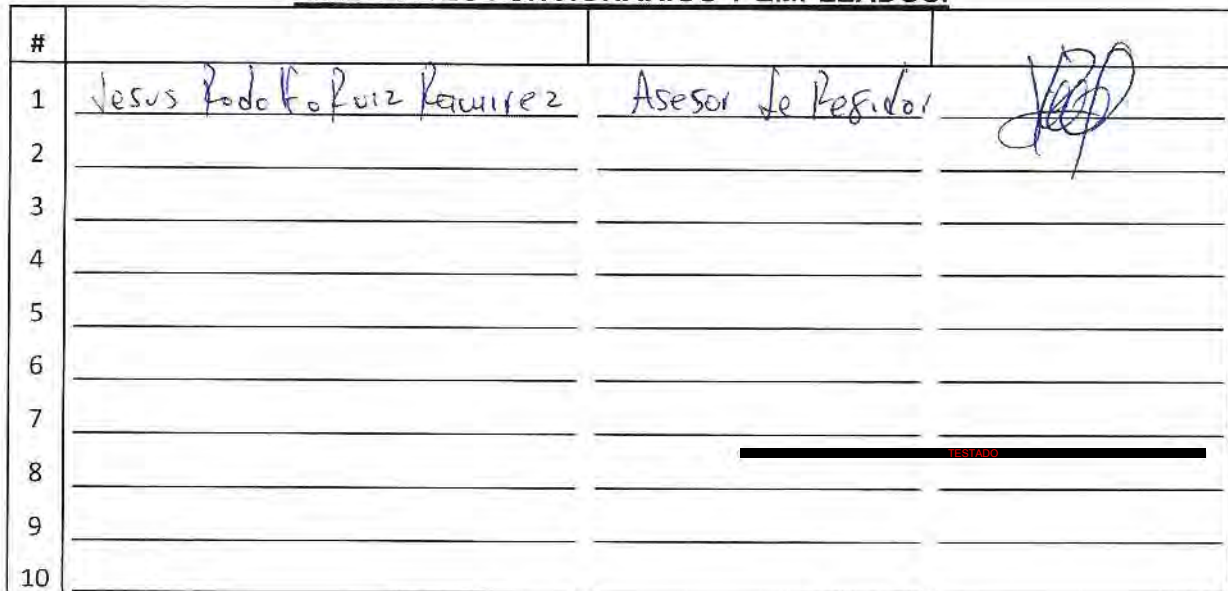 #
1 Jesus Rodolfo Ruiz Ramirez Asesor de Regidor
2
3
4
5
6
7
TESTADO
8
9
10